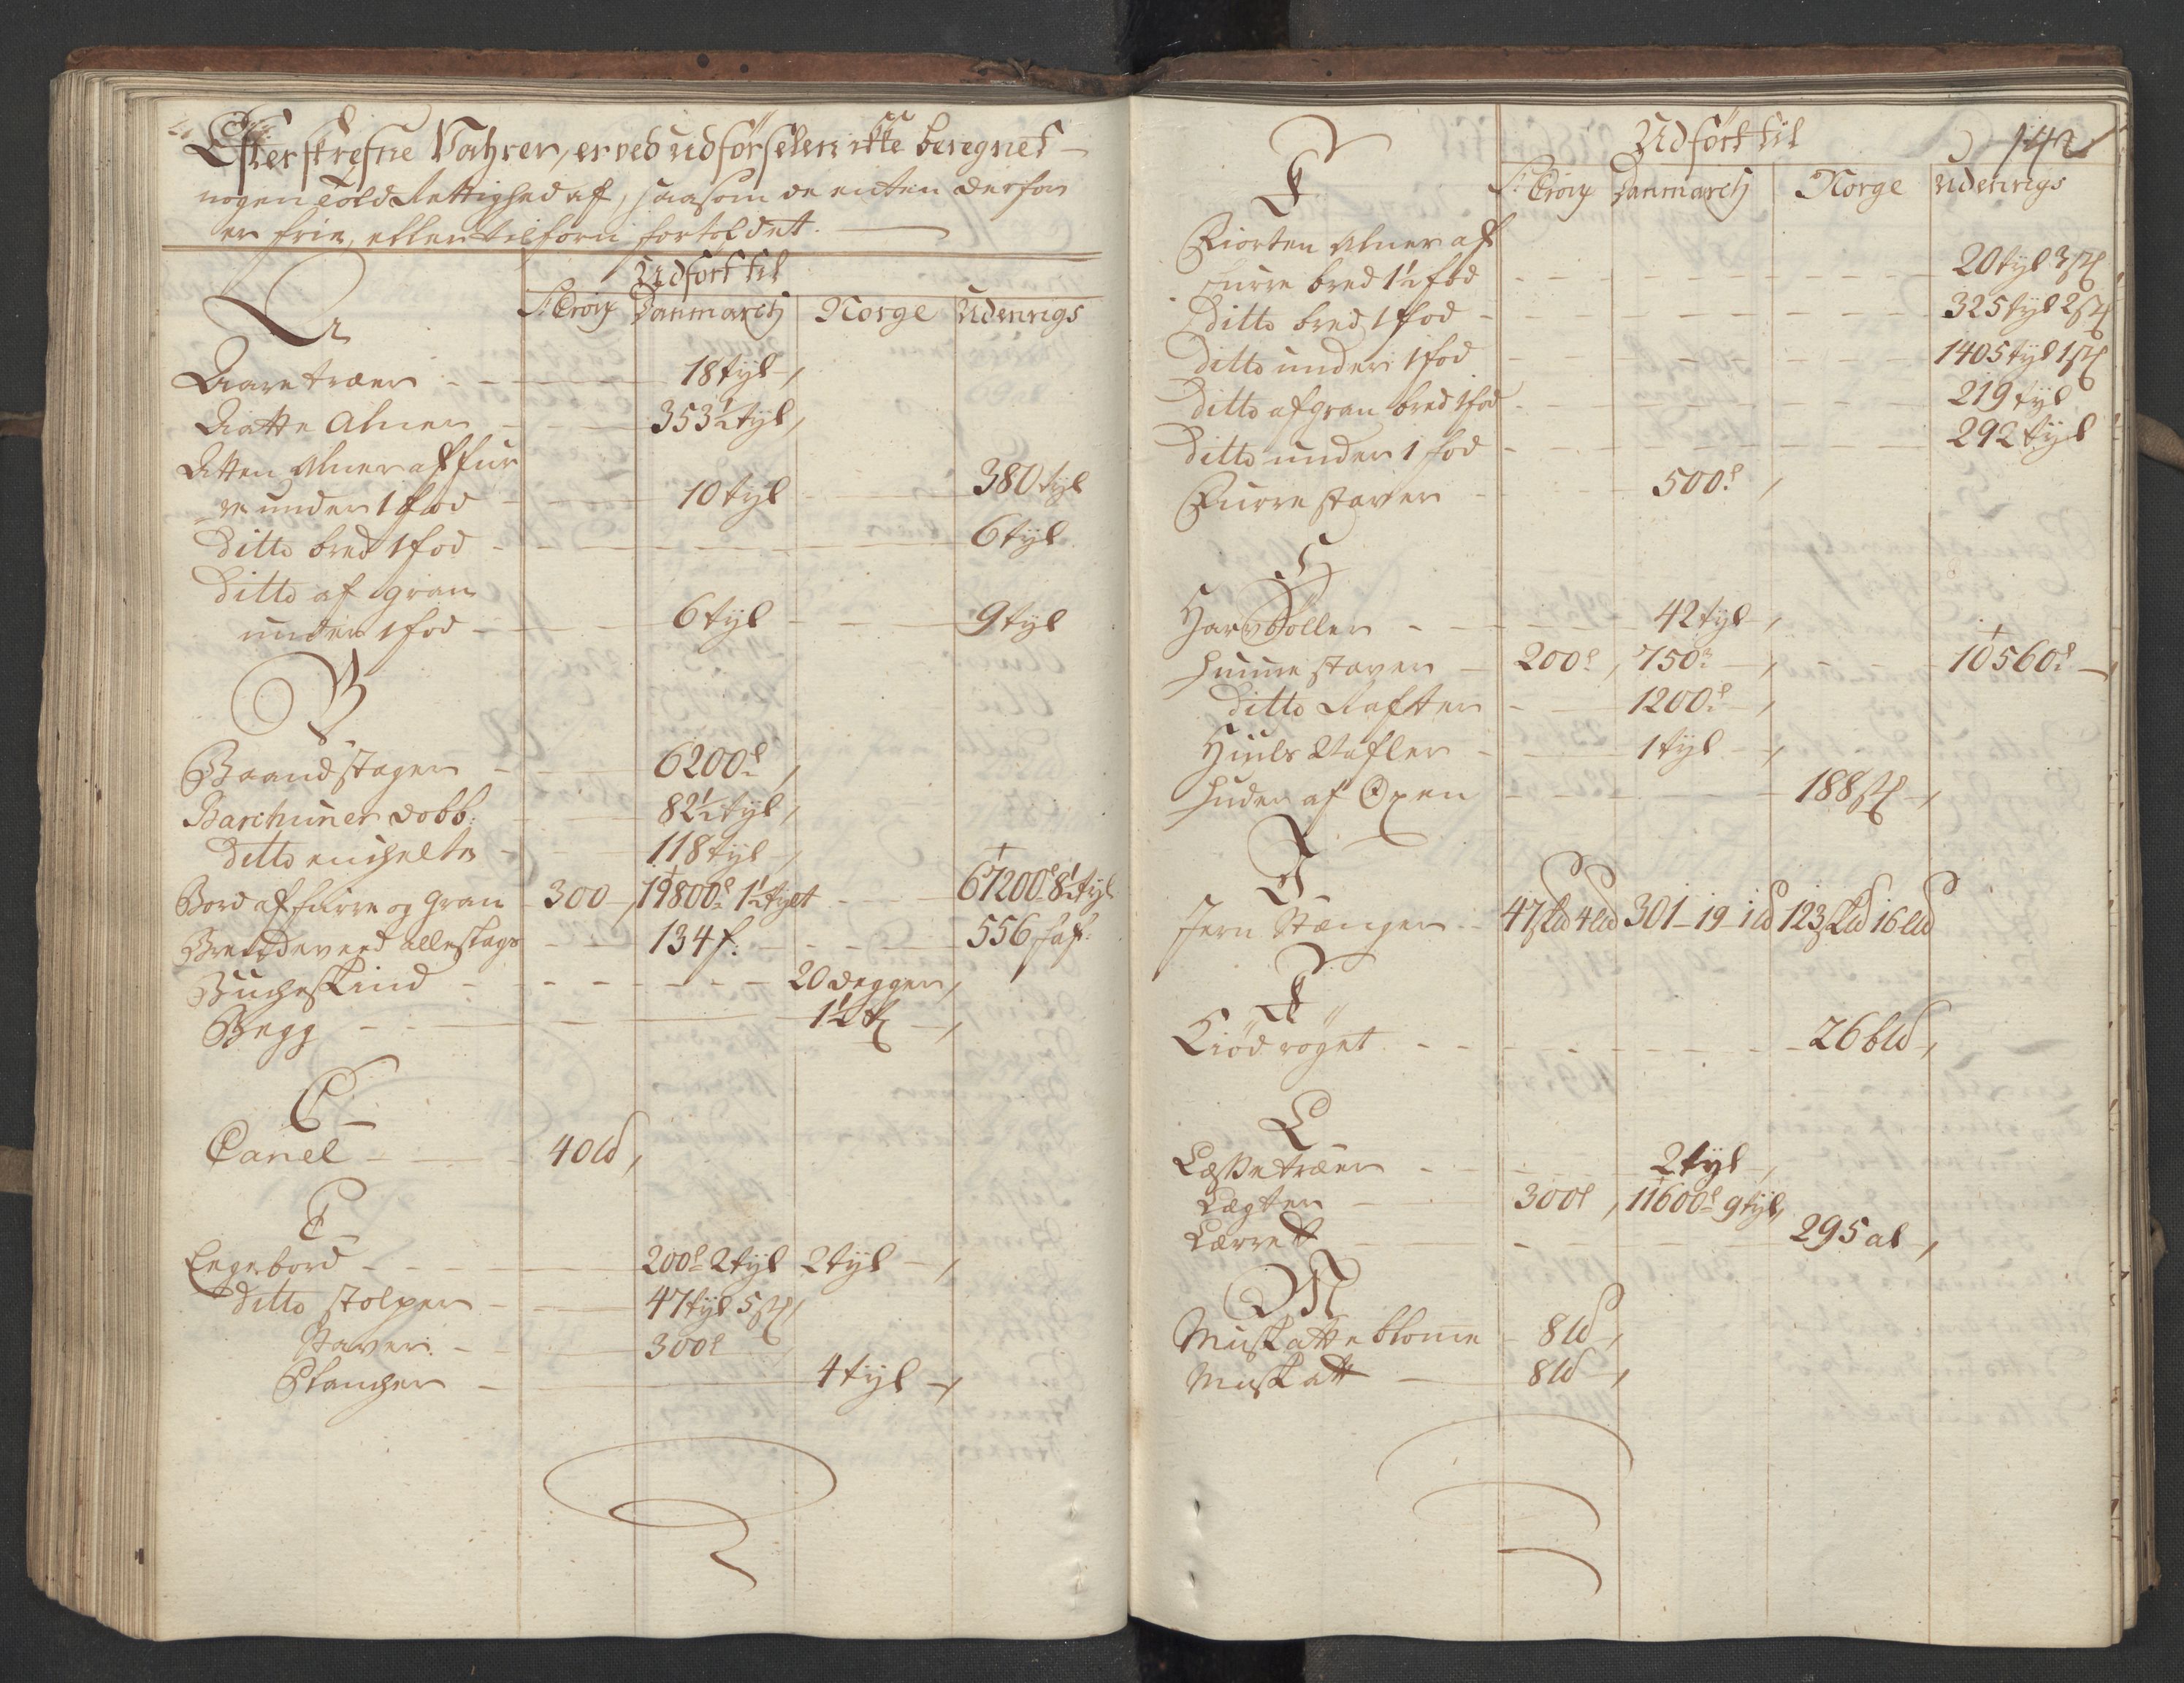 Efterskrefne Vahrer, er ved udförselen ikke beregnet
nogen Told Rettighed af, saasom de enten derfor
er frie, eller tilforn fortoldet.
Udfört til
St: Croix Danmarch Norge Udenrigs
A
Aaretræer 18 tyl
Aatte Alner 353½ tyl
Atten Alner af fur
re under 1 fod 10 tyl 380 tyl
Ditto bred 1 fod 6 tyl
Ditto af gran
under 1 fod 6 tyl 9 tyl
B
Baandstager 6200 s
Barchuner dobb: 82½ tyl
Ditto enchelte 118 tyl
Bord af furre og gran 300 19800 s 1½ tylt 67200 s 8½ tyl
Brendeved alleslags 134 f: 556 faf:
Bucheskind 20 degger
Begg 1½ t
C
Canel 40 lb
E
Egebord 200 s 2 tyl 2 tyl
Ditto stolper 47 tyl 5 st
Staver 300 s
Plancher 4 tyl
142
Udfört til
F
St: Croix Danmarch Norge Udenrigs
Fiorten Alner af
furre bred 1½ fod 20 tyl 3 st
Ditto bred 1 fod 325 tyl 2 st
Ditto under 1 fod 1405 tyl 1 st
Ditto af gran bred 1 fod 219 tyl
Ditto under 1 fod 292 tyl
Furre staver 500 s
H
Harvböller 42 tyl
Humme staver 200 s 750 s 10560 s
Ditto Rafter 1200 s
Hiuls Tafler 1 tyl
Huder af Oxen 188 st
J
Jern Stænger 47 slb 4 lb 301 - 19 - 1 lb 123 slb 16 lb
K
Kiöd röget 26 blb
L
Læssetræer 2 tyl
Lægter 300 s 11600 s 9 tyl
Lærret 295 al
M
Muskatteblome 8 lb
Muskatt 8 lb